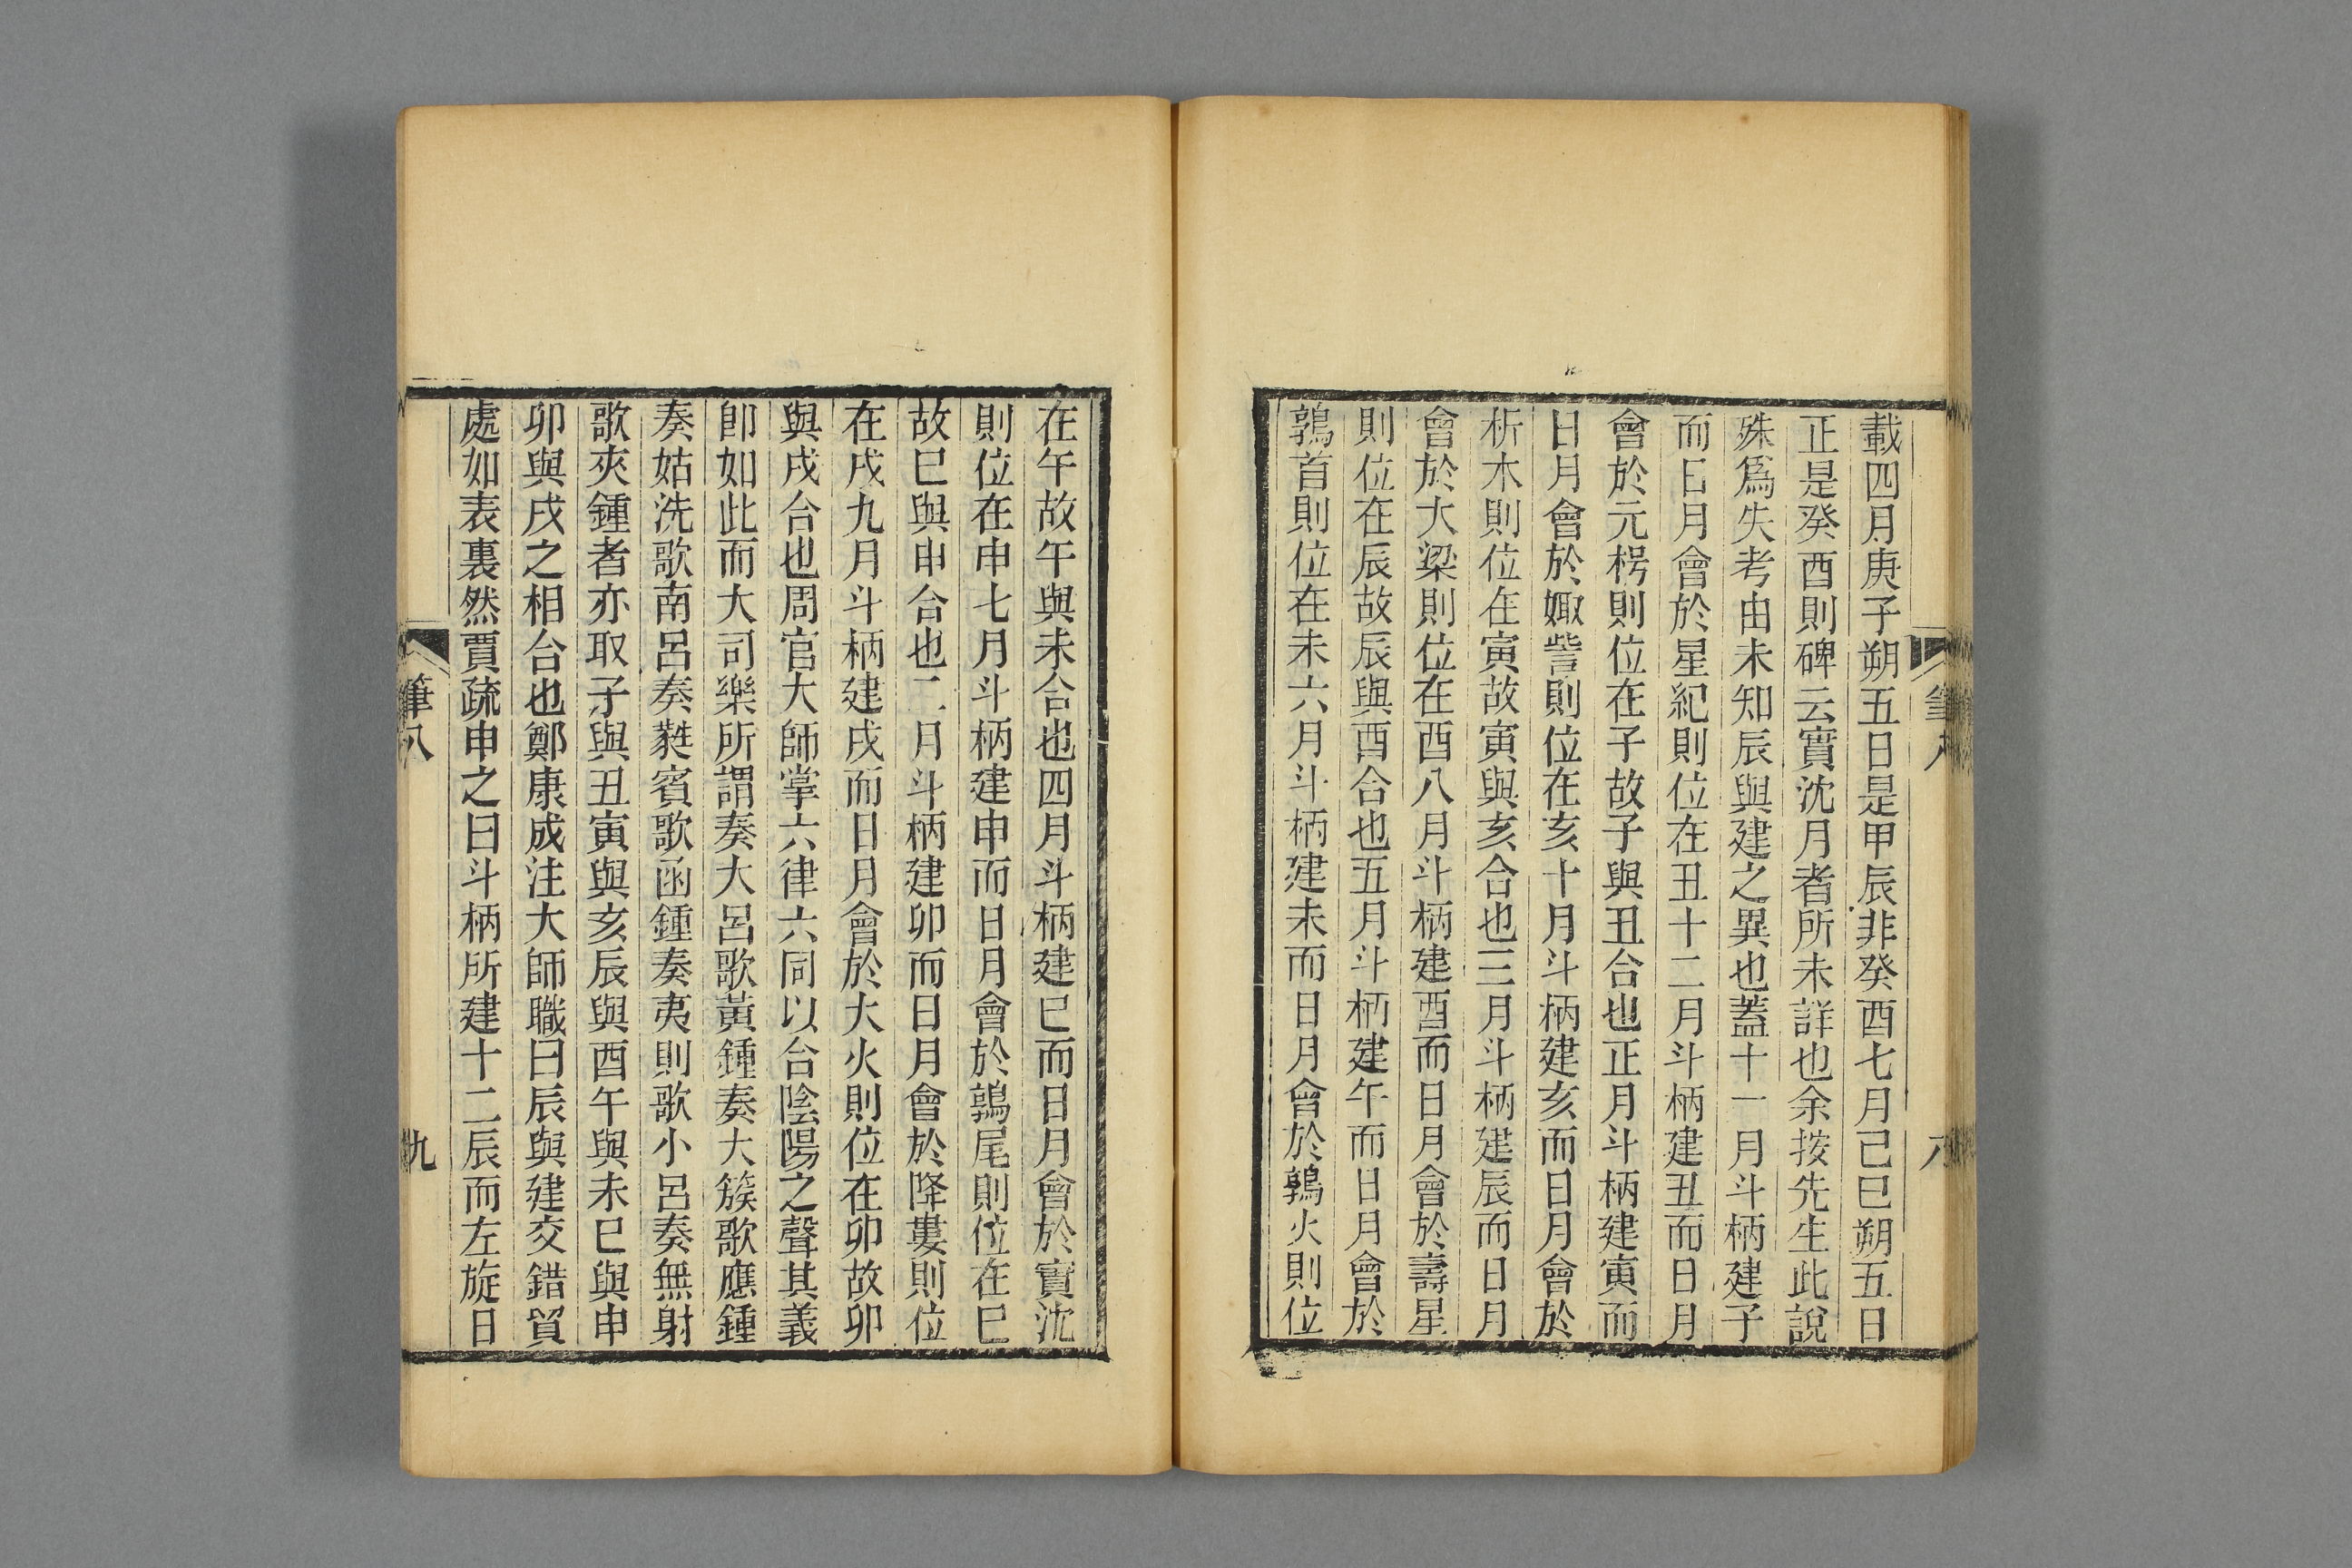 載四月庚子朔五日是甲辰非癸酉七月己巳朔五日
正是癸酉則碑云實沈月者所未詳也余按先生此說
殊爲失考由未知辰與建之異也蓋十一月斗柄建子
而日月會於星紀則位在丑十二月斗柄建丑而日月
會於元枵則位在子故子與丑合也正月斗柄建寅而
日月會於娵訾則位在亥十月斗柄建亥而日月會於
析木則位在寅故寅與亥合也三月斗柄建辰而日月
會於大梁則位在酉八月斗柄建酉而日月會於壽星
則位在辰故辰與酉合也五月斗柄建午而日月會於
鶉首則位在未六月斗柄建未而日月會於鶉火則位
筆八
八
在午故午與未合也四月斗柄建巳而日月會於實沈
則位在申七月斗柄建申而日月會於鶉尾則位在巳
故巳與申合也二月斗柄建卯而日月會於降婁則位
在戌九月斗柄建戌而日月會於大火則位在卯故卯
與戌合也周官大師掌六律六同以合陰陽之聲其義
卽如此而大司樂所謂奏大呂歌黃鍾奏大簇歌應鍾
奏姑洗歌南呂奏蕤賓歌函鍾奏夷則歌小呂奏無射
歌夾鍾者亦取子與丑寅與亥辰與酉午與未巳與申
卯與戌之相合也鄭康成注大師職曰辰與建交錯貿
處如表裏然賈疏申之曰斗柄所建十二辰而左旋日
筆八
九